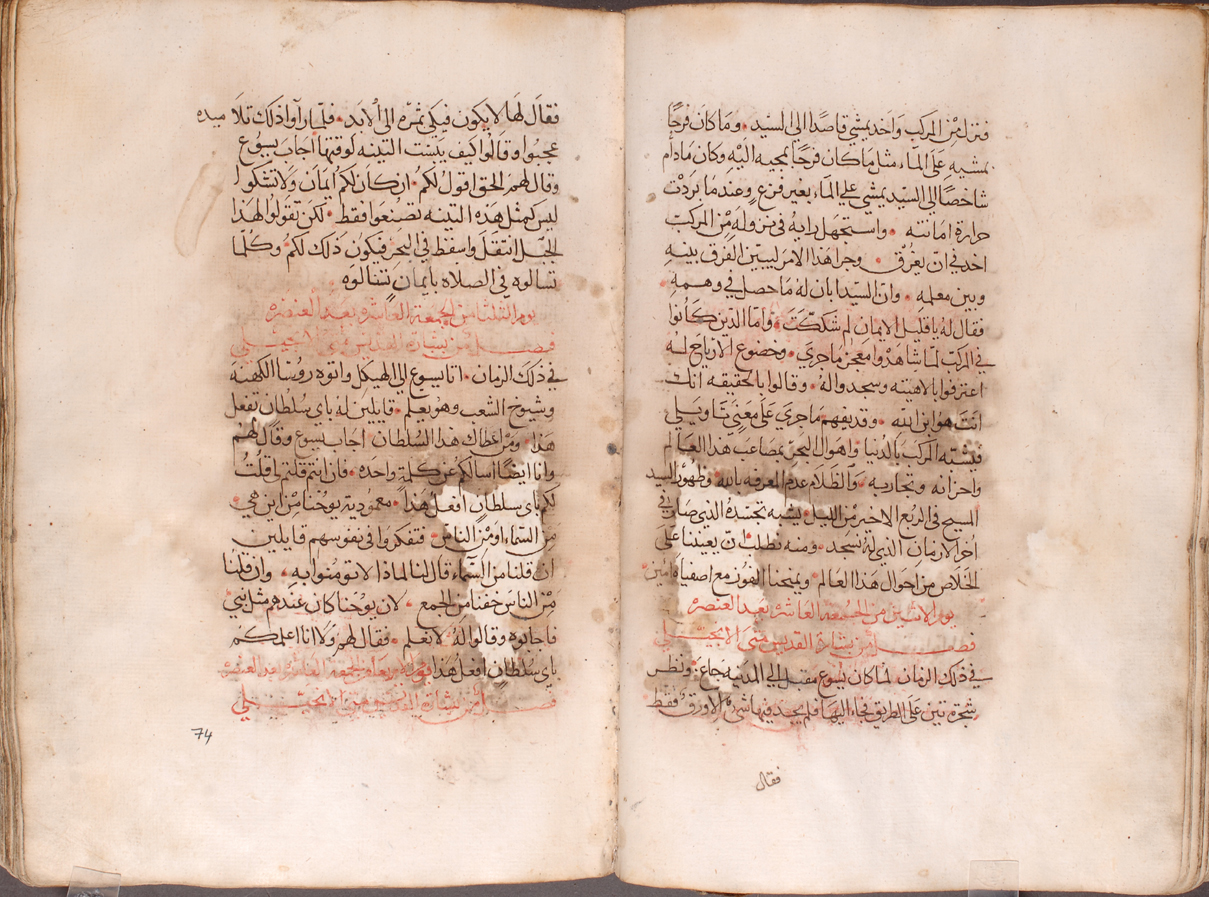 فنزل من المركب واخد يمشي قاصدًا الى السيد • وما كان فرحًا
بمشيه على الماء مثل ما كان فرحًا بمجيه اليه وكان مادام
شاخصًا الي السيد يمشي علي الماء بغير فزع وعند ما بردت
حرارة امانته • واستجهل رايه في نزوله من المركب
اخد في ان يغرق • وجرا هدا الامر ليبين الفرق بينه
وبين معلمه • وان السيد ابان له ما حصل في وهمه •
فقال له يا قليل الايمان لم شككت • واما الدين كانوا
في المركب لما شاهدوا معجز ما جري • وخضوع الارياح له
اعترفوا بالاهيته وسجدوا له • وقالوا بالحقيقه انك
انت هو ابن الله • وقد يفهم ما جري على معني تاويلي
فتشبه المركب بالدنيا واهوال البحر بمصاعب هدا العالم
واحزانه وتجاربه • والظلام عدم المعرفه بالله وظهور السيد
المسيح في الربع الاخير من الليل • يشبه تجسده الدي صار في
اخر الازمان الدي له نسجد • ومنه نطلب ان يعيننا على
الخلاص من احوال هدا العالم • ويمنحنا الفوز مع اصفياه امين
يوم الاتنين من الجمعه العاشره بعد العنصره
فصل من بشارة القديس متى الانجيلي
في دلك الزمان لما كان يسوع مقبل الي المدينه جاع • ونظر
شجرة تين على الطريق فجاء اليها فلم يجد فيها شي الا ورق فقط
فقال
فقال لها لا يكون فيكي ثمره الى الابد • فلما راوا دلك تلاميده
عجبوا وقالوا كيف يبست التينه لوقتها اجاب يسوع
وقال لهم الحق اقول لكم • ان كان لكم ايمان ولا تشكوا
ليس كمثل هده التينه تصنعوا فقط • لكن تقولوا لهدا
الجبل انتقل واسقط في البحر فيكون دلك لكم وكلما
تسالوه في الصلاه بايمان تنالوه
يوم الثلثا من الجمعة العاشره بعد العنصره
فصل من بشارة القديس متى الانجيلي
في دلك الزمان • اتا يسوع الى الهيكل واتوه روسا الكهنه
وشيوخ الشعب وهو يعلم • قايلين له باي سلطان تفعل
هدا • ومن اعطاك هدا السلطان اجاب يسوع وقال لهم
وانا ايضًا اسالكم عن كلمة واحده • فان انتم قلتم لي قلتُ
لكم باي سلطانٍ افعل هدا • معمودية يوحنا من اين هي •
من السماء او من الناس • فتفكروا في نفوسهم قايلين
ان قلنا من السماء قال لنا لمادا لا تومنوا به • وان قلنا
من الناس خفنا من الجمع • لان يوحنا كان عندهم مثل نبي
فاجابوه وقالوا له لا نعلم • فقال لهم ولا انا اعلمكم
باي سلطانٍ افعل هدا يوم الاربعاء من الجمعه العاشره بعد العنصره
فصل من بشارة القديس متى الانجيلي
74